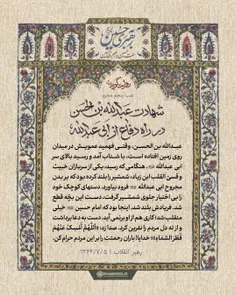 شهادت عبدالله بن الحسن
در راه دفاع از ابی عبدالله
عبدالله بن الحسن، وقتی فهمید عمویش در میدان
روی زمین افتاده است، با شتاب آمد و رسید بالای سر
ابی عبدالله. هنگامی که رسید، یکی از سربازان خبیث
و قسی القلب ابن زیاد، شمشیر را بلند کرده بود که بر بدن
مجروح ابی عبدالله فرود بیاورد. دستهای کوچک خود
را بی اختیار جلوی شمشیر گرفت، دست این بچه قطع
شد. فریادش بلند شد. اینجا بود که امام حسین خیلی
منقلب شد؛ کاری هم از او برنمی آید. دست به دعا برداشت
و از ته دل مردم را نفرین کرد. صدا زد: «اللهم أمسک عنهم
قطر السماء» خدایا! باران رحمتت را بر این مردم حرام کن.
رهبر انقلاب